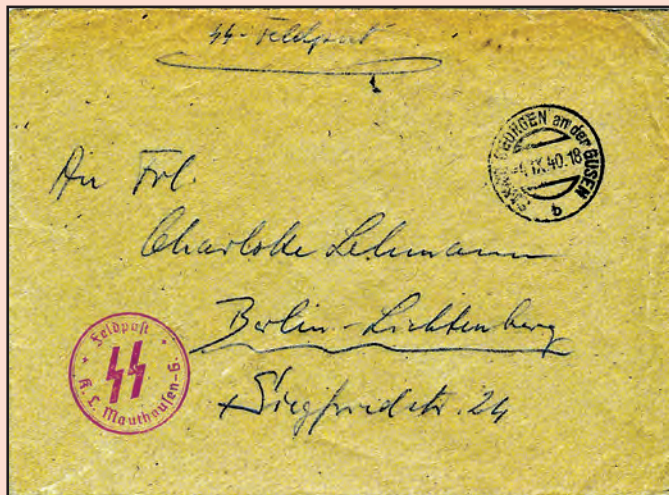 SS-Feldpost
GEORGEN an der GUSEN
IX.40.18
b
An Frl.
Charlotte Lehmann
Berlin-Lichtenberg
Siegfriedstr. 24
Feldpost
SS
K.L. Mauthausen-G.